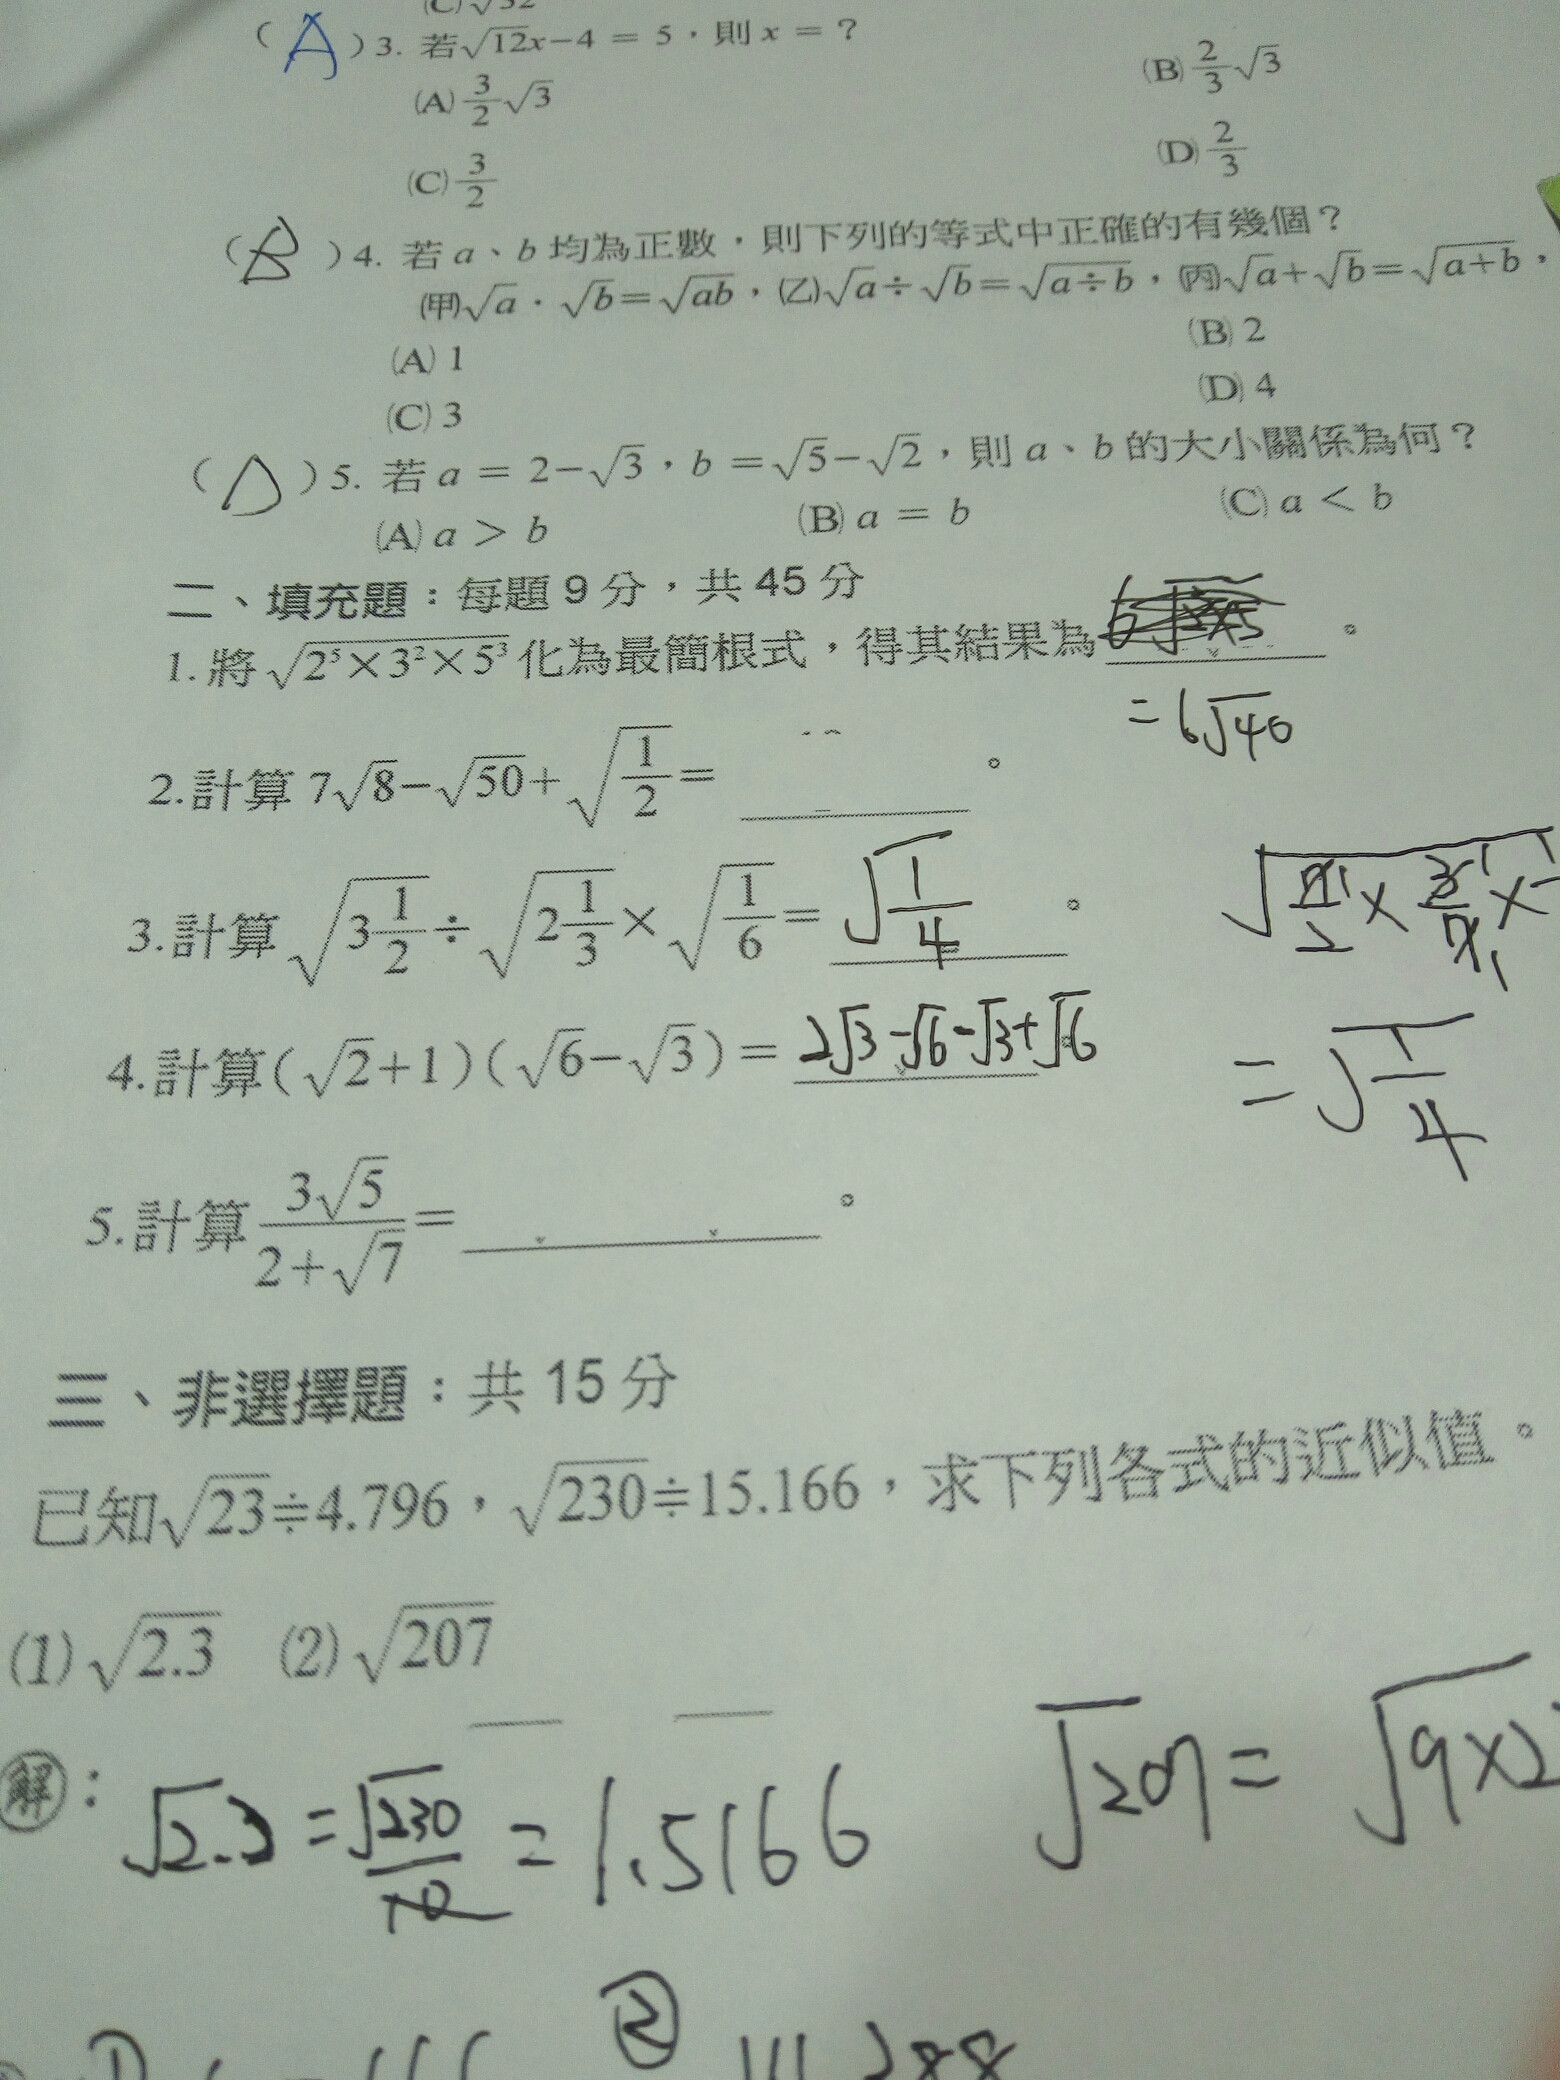 (C)√32
( A )3. 若√12x−4 = 5，則 x = ？
(A) 3/2 √3 (B) 2/3 √3
(C) 3/2 (D) 2/3
( B )4. 若 a、b 均為正數，則下列的等式中正確的有幾個？
(甲)√a · √b=√ab，(乙)√a÷√b=√a÷b，(丙)√a+√b=√a+b，
(A) 1 (B) 2
(C) 3 (D) 4
( D )5. 若 a = 2−√3，b =√5−√2，則 a、b 的大小關係為何？
(A) a > b (B) a = b (C) a < b
二、填充題：每題 9 分，共 45 分
1. 將 √2⁵×3²×5³ 化為最簡根式，得其結果為 。
= 6√40
2.計算 7√8−√50+√1/2= 。
3.計算 √3 1/2÷√2 1/3×√1/6= √1/4 。
√7/2 × 3/7 ×
= √1/4
4.計算( √2+1)( √6−√3 )= 2√3−√6−√3+√6
5.計算 3√5/2+√7= 。
三、非選擇題：共 15 分
已知√23≑4.796，√230≑15.166，求下列各式的近似值。
(1)√2.3 (2)√207
解： √2.3 = √230/10 = 1.5166 √207 = √9×2
②